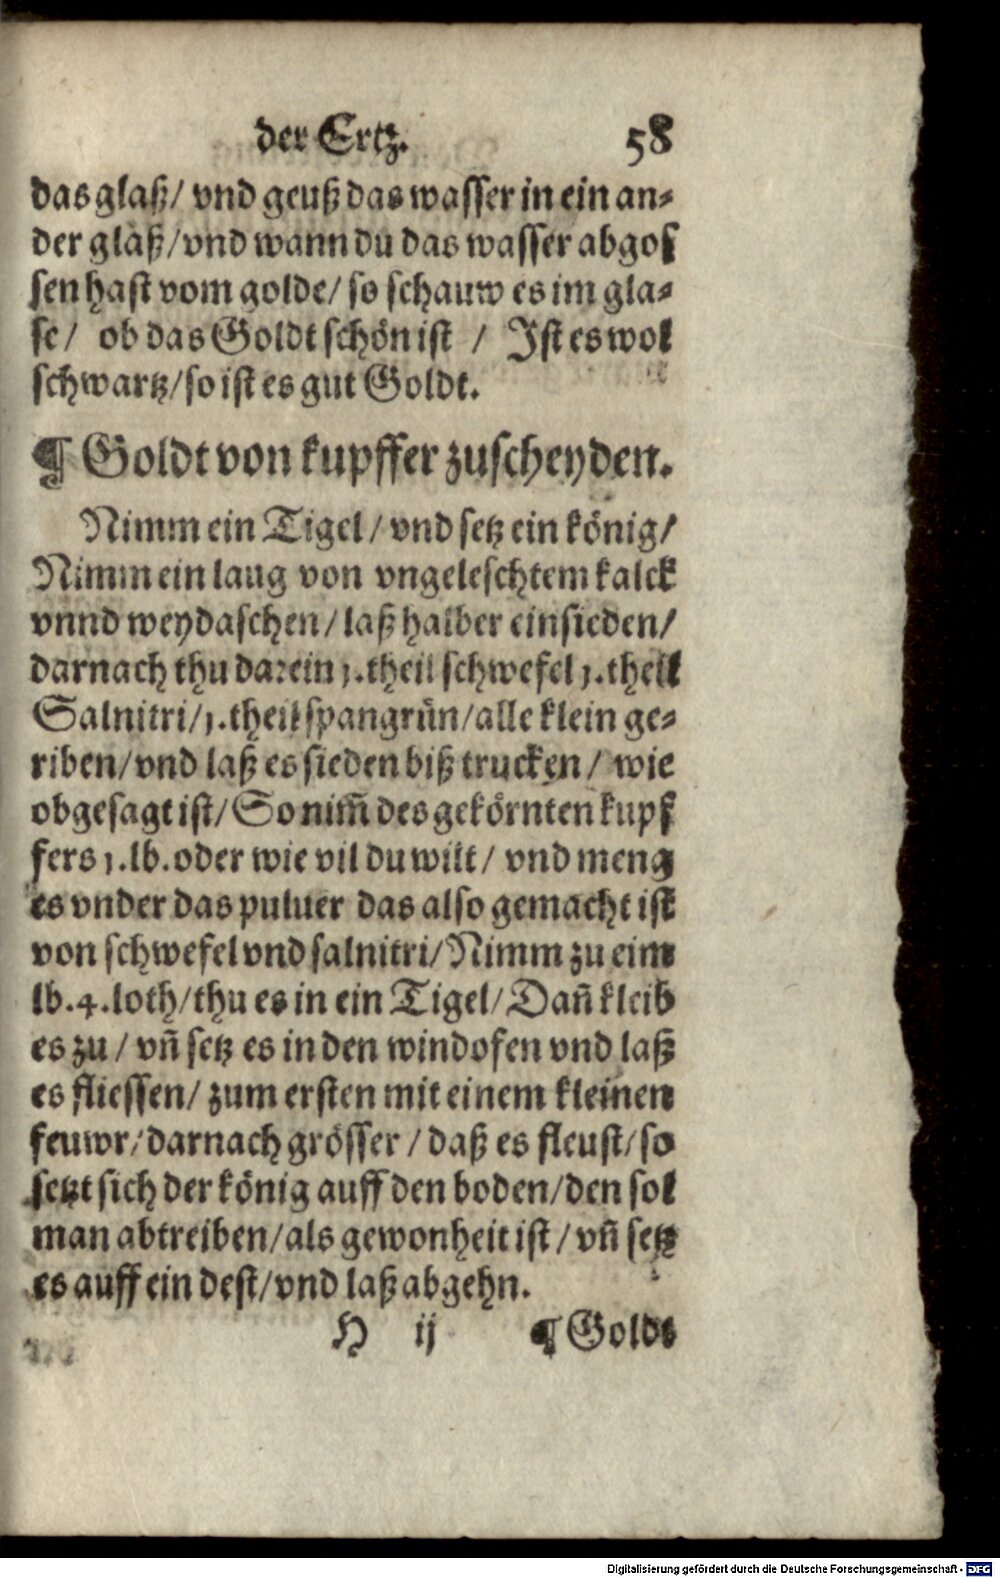 der Ertz. 58
das glaß/ vnd geuß das wasser in ein an-
der glaß/vnd wann du das wasser abgos
sen hast vom golde/ so schauw es im gla-
se/ ob das Goldt schön ist / Ist es wol
schwartz/so ist es gut Goldt.
¶ Goldt von kupffer zuscheyden.
Nimm ein Tigel/vnd setz ein könig/
Nimm ein laug von vngeleschtem kalck
vnnd weydaschen/laß halber einsieden/
darnach thu darein j.theil schwefel j.theil
Salnitri/j.theil spangrün/alle klein ge-
riben/vnd laß es sieden biß trucken/ wie
obgesagt ist/So nim̃ des gekörnten kupf
fers j.lb.oder wie vil du wilt/ vnd meng
es vnder das puluer das also gemacht ist
von schwefel vnd salnitri/Nimm zu eim
lb.4.loth/thu es in ein Tigel/Dañ kleib
es zu / vñ setz es in den windofen vnd laß
es fliessen/ zum ersten mit einem kleinen
feuwr/darnach grösser / daß es fleust/so
setzt sich der könig auff den boden/den sol
man abtreiben/als gewonheit ist/ vñ setz
es auff ein dest/vnd laß abgehn.
H ij ¶ Goldt
Digitalisierung gefördert durch die Deutsche Forschungsgemeinschaft - DFG